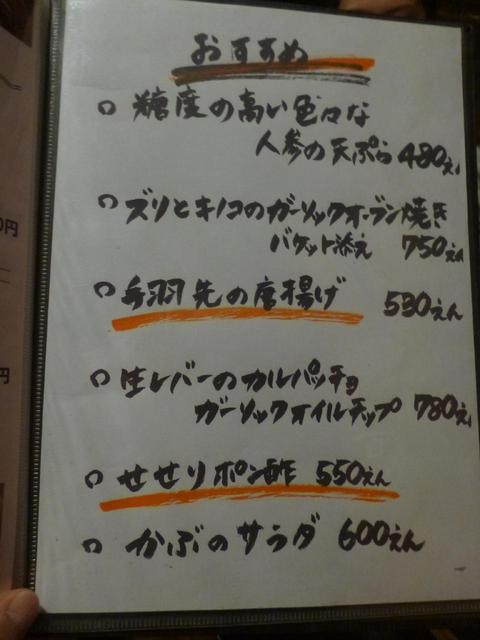 おすすめ
○ 糖度の高い色々な
人参の天ぷら 480えん
○ ズリとキノコのガーリックオーブン焼き
バケット添え 750えん
○ 手羽先の唐揚げ 530えん
○ 生レバーのカルパッチョ
ガーリックオイルチップ 780えん
○ せせりポン酢 550えん
○ かぶのサラダ 600えん
0円
円